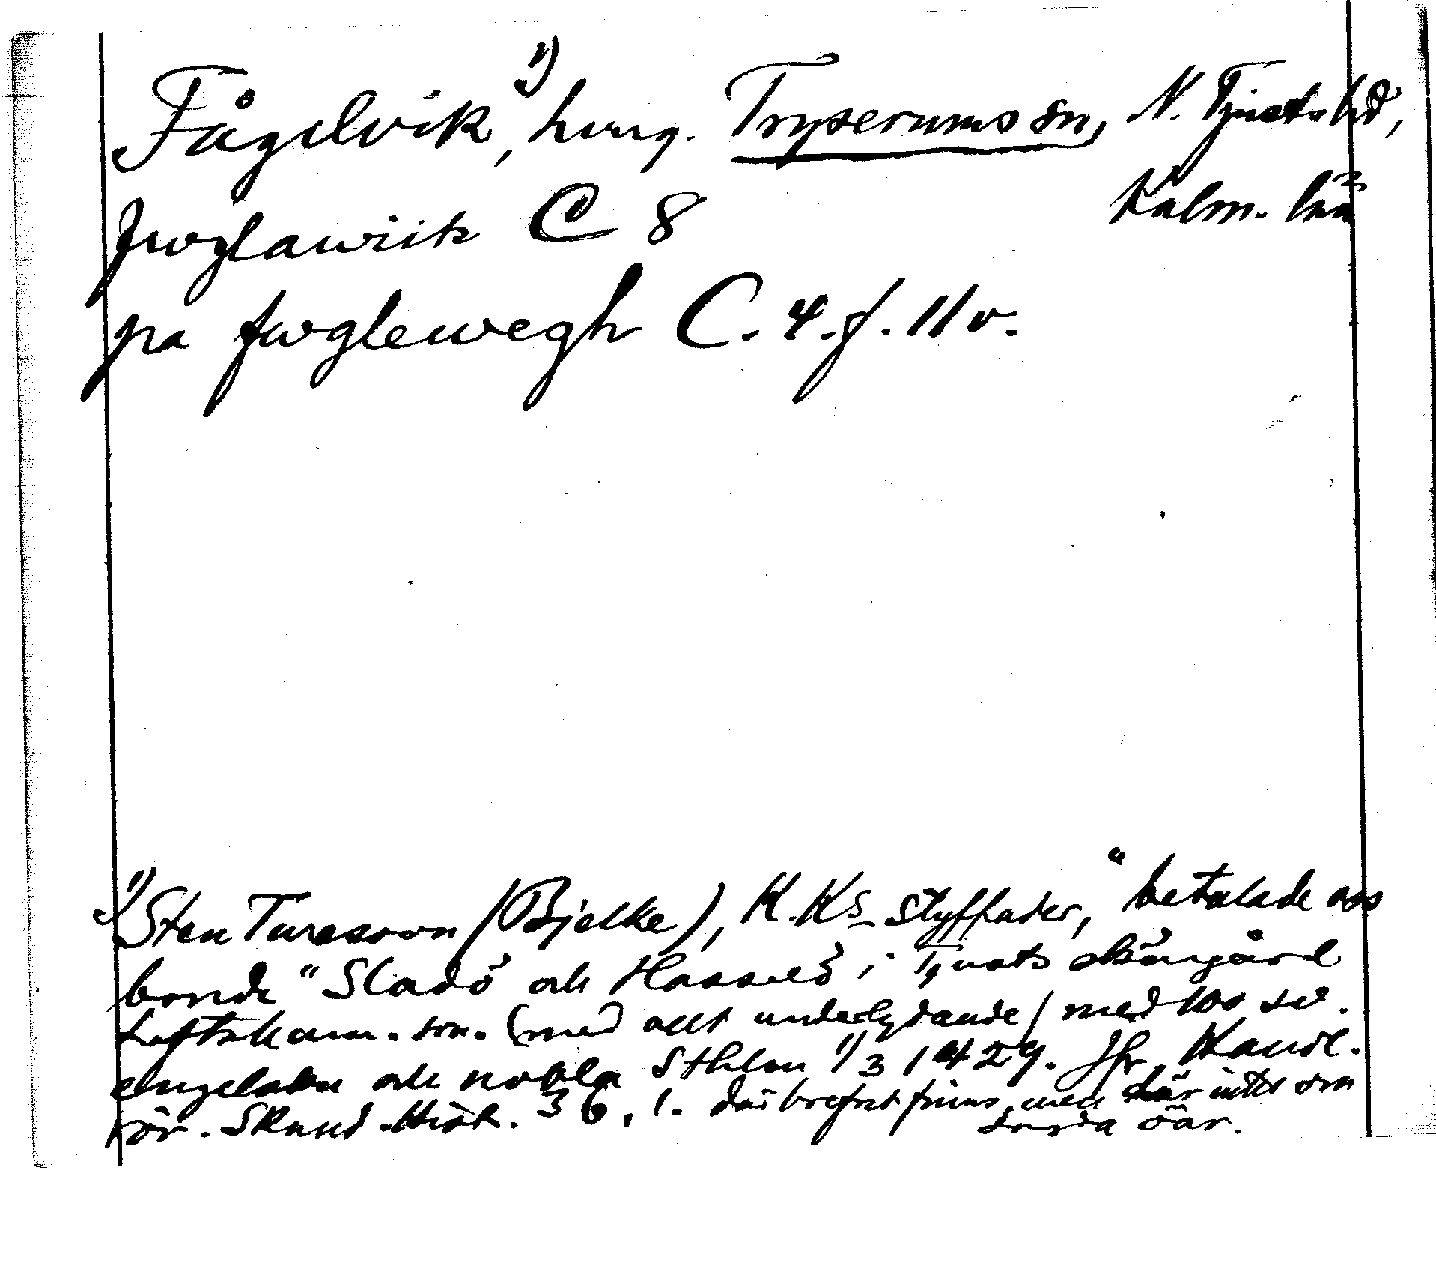 Fågelvik,¹) herrg. Tryserums sn, N. Tjusts hd,
Kalm. län
fwglawiik C 8
pa fwglewegh C. 4. f. 11 v.
¹) Sten Turesson (Bjelke), K. Ks styffader, "betalade
bonde" Sladö och Hasselö i Tjusts skärgård
(med allt underlydande) med 100 sv.
engelska och nobla Sthlm 1/3 1429. Jfr Handl.
rör. Skand. Hist. 36, 1. där brefvet finns, men där intet om
dessa öar.